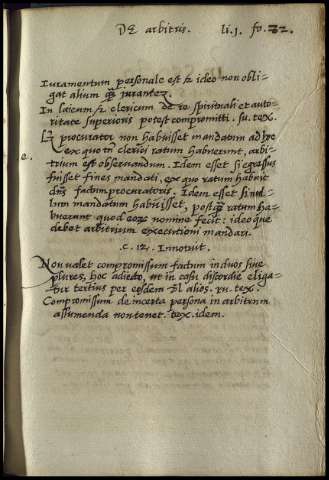 DE arbitris. li.j. fo. 32.
Iuramentum personale est & ideo non obli=
gat alium q̃ iurantem.
In laicum & clericum de re spirituali et auto=
ritate superioris potest compromitti. su. tex.
procurator non habuisset mandatum ad
ex quo tn̄ clerici ratum habuerunt, arbi=
trium est observandum. Idem esset si egressus
fuisset fines mandati, ex quo ratum habuit
dn̄s factum procuratoris. Idem esset si nul=
lum mandatum habuisset, postq̃ ratum ha=
buerunt quod eorum nomine fecit: ideo que
debet arbitrium executioni mandari.
e.
c. 12. Innotuit.
Non valet compromissum factum in duos sive
plures, hoc adiecto, ut in casu discordie eliga=
tur tertius per eosdem vel alios. tex.
Compromissum de incerta persona in arbitrum
assumenda non tenet. tex. idem.